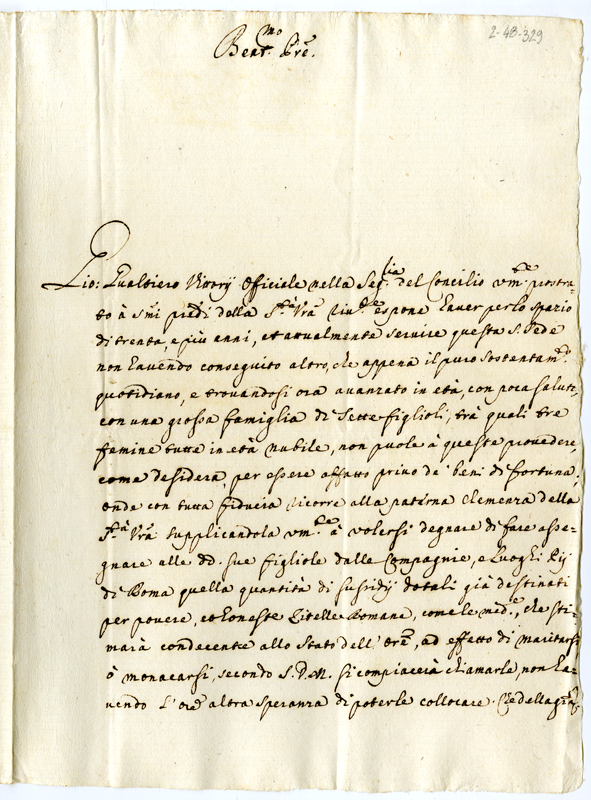 2-48-329
Beat.mo Pre.
Gio: Gualtiero Vittorij Officiale nella Seg.ria del Concilio um.te prostra-
to à S.mi piedi della S.tà Vra riu.te espone haver per lo spazio
di trenta, e più anni, et attualmente servire questa S. Sede
non havendo conseguito altro, che appena il puro sostentam.to
quotidiano, e trovandosi ora avanzato in età, con poca salute,
con una grossa famiglia di sette figlioli, trà quali tre
femine tutte in età nubile, non puole à queste provedere,
come desidera, per essere affatto privo de' beni di fortuna;
onde con tutta fiducia ricorre alla paterna clemenza della
S.tà Vra supplicandola um.te à volersi degnare di fare asse-
gnare alle dd. sue figliole dalle Compagnie, e Luoghi Pij
di Roma quella quantità di susidij dotali già destinati
per povere, et honeste Zitelle Romane, come le med.e, che sti-
marà condecente allo stato dell'Ore, ad effetto di maritarsi
ò monacarsi, secondo S.D.M. si compiacerà chiamarle, non ha-
vendo l'Ore altra speranza di poterle collocare. Che della gra.